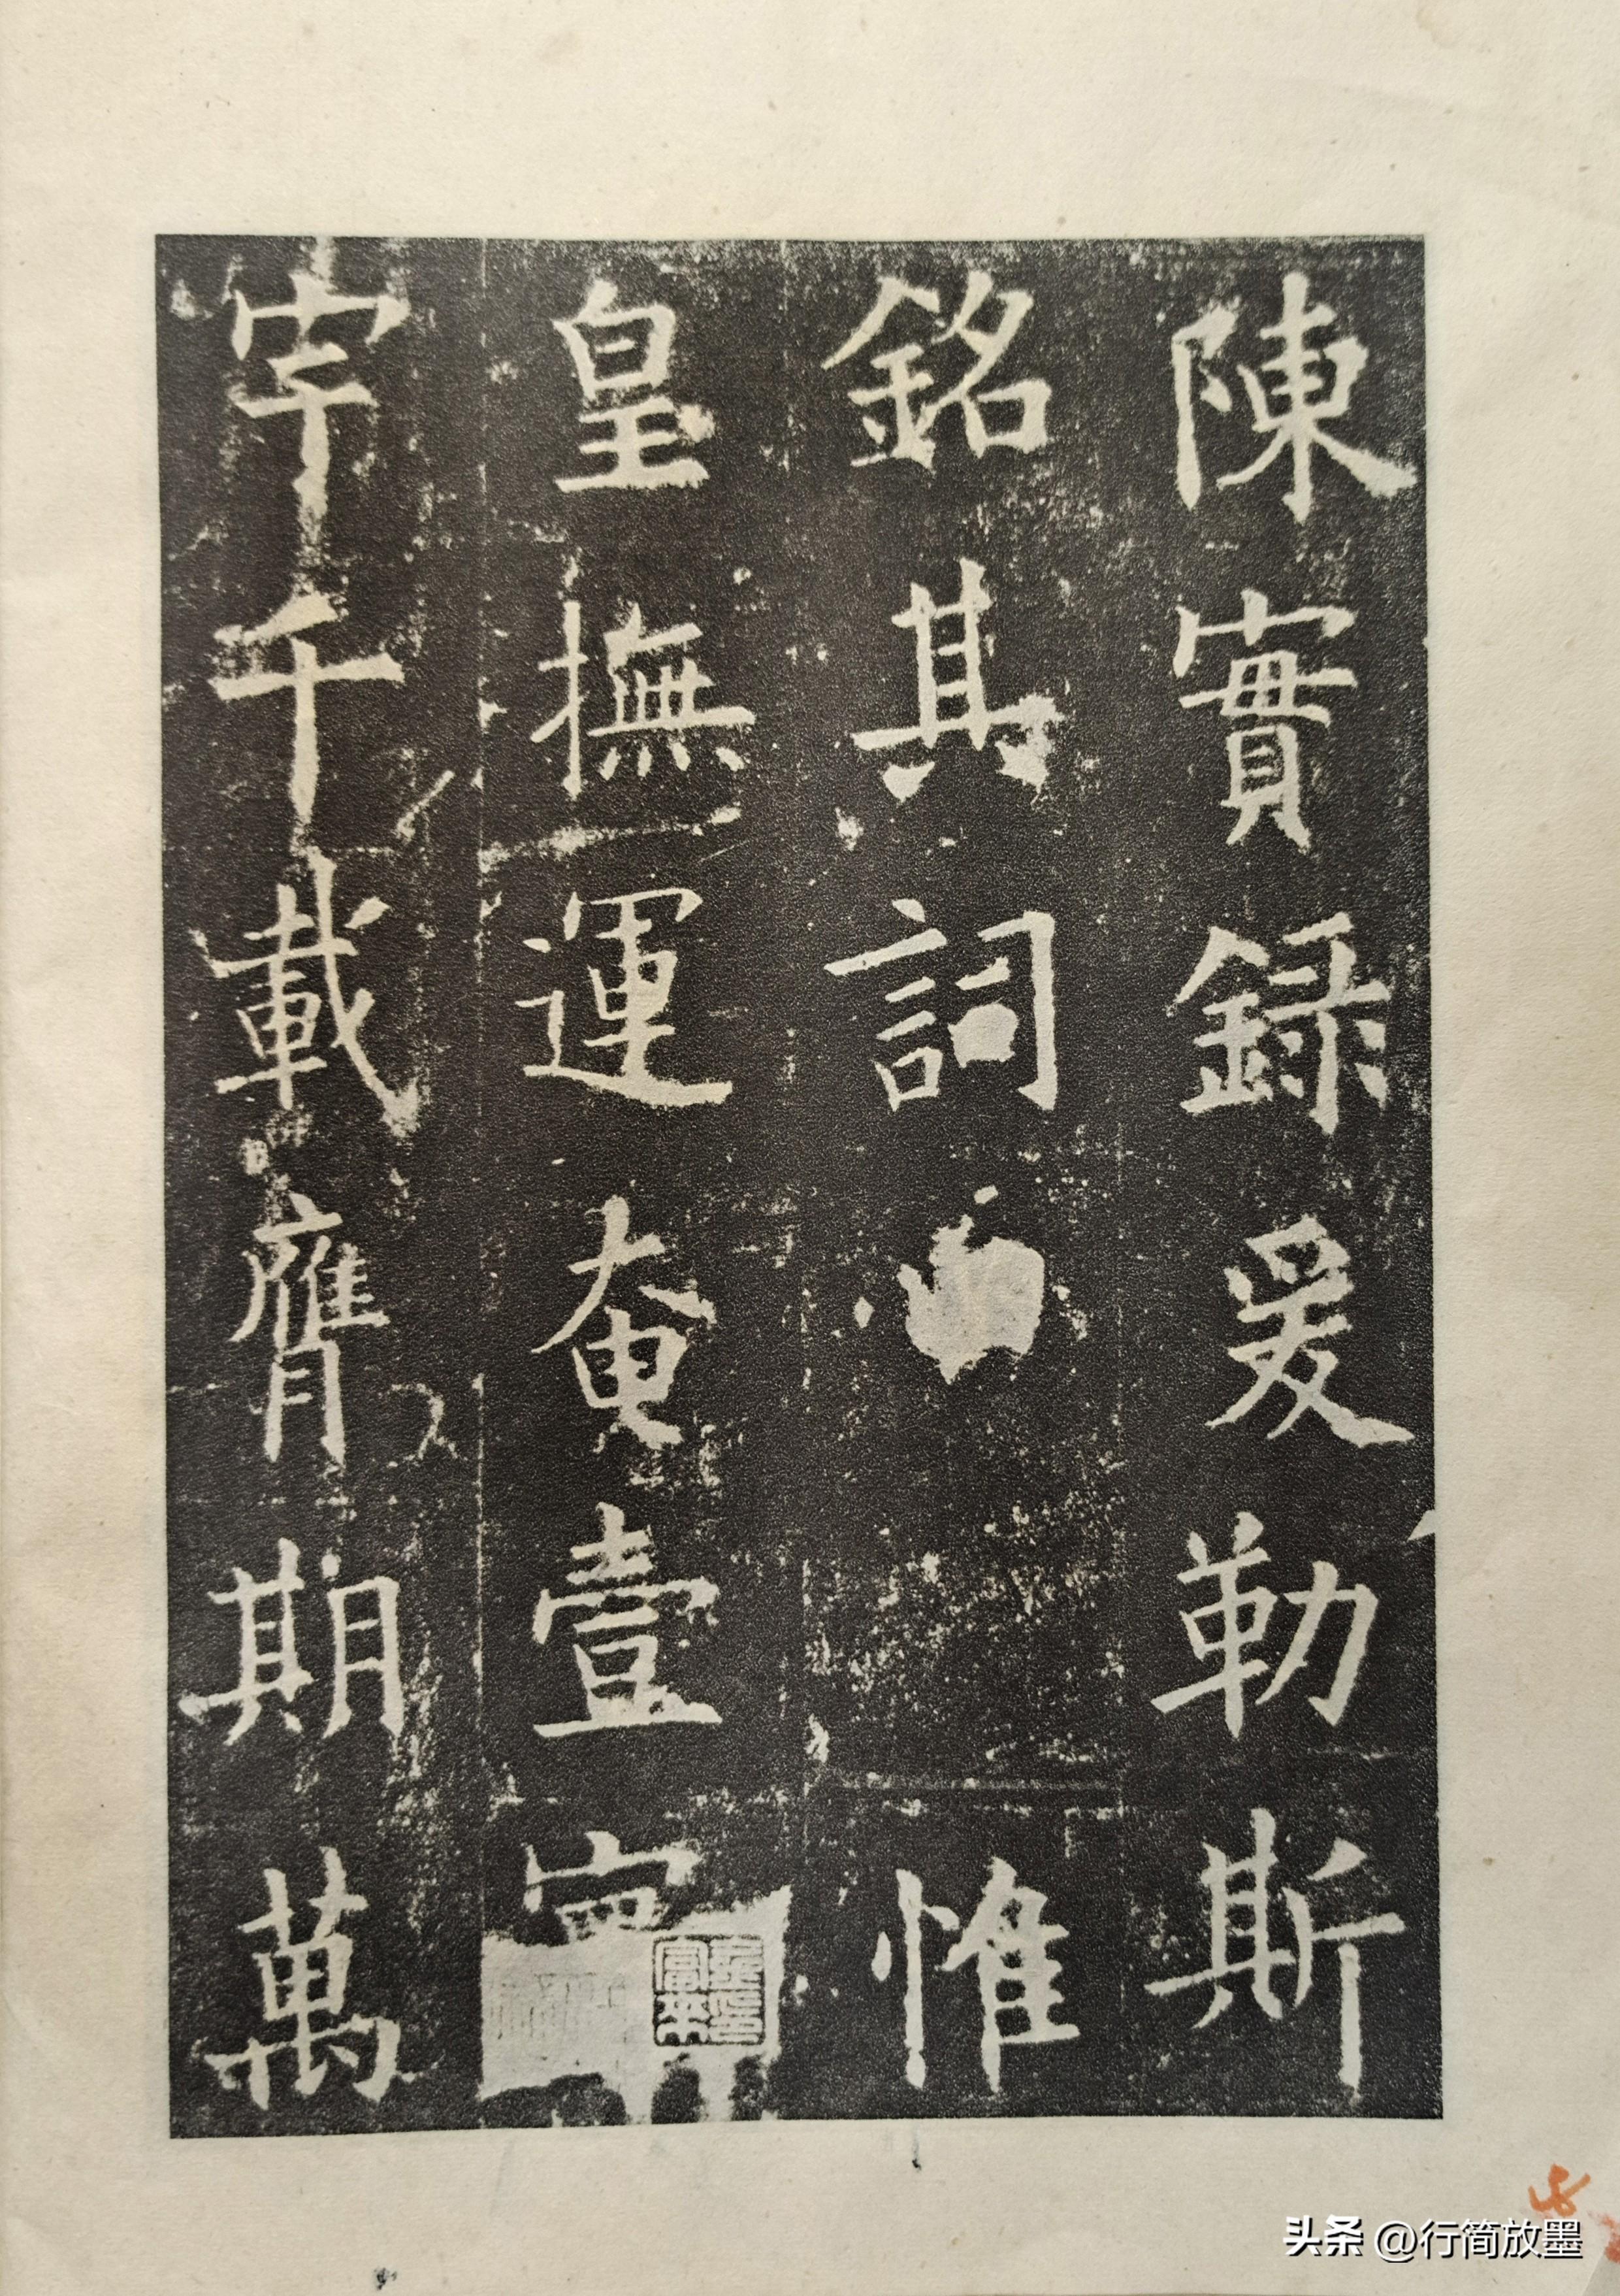 陳實録爰勒斯
銘其詞惟
皇撫運奄壹
宇千載膺期萬
头条 @行简放墨